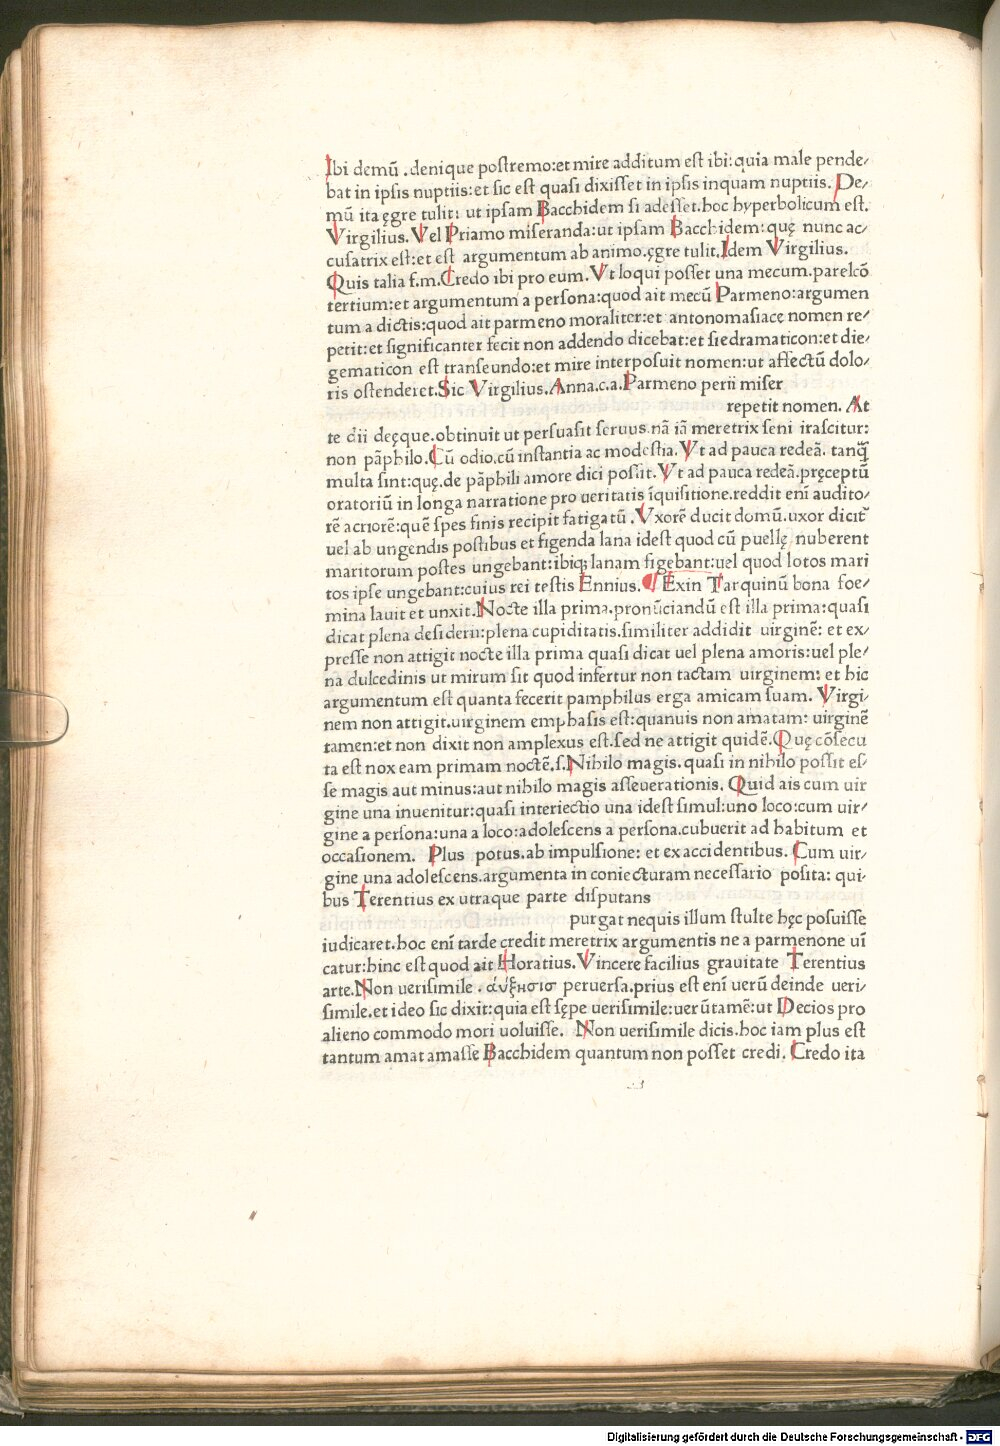 Ibi demū .denique postremo:et mire additum est ibi:quia male pende/
bat in ipsis nuptiis:et sic est quasi dixisset in ipsis inquam nuptiis. De/
mū ita ęgre tulit: ut ipsam Bacchidem si adesset.hoc hyperbolicum est.
Virgilius.Vel Priamo miseranda:ut ipsam Bacchidem:quę nunc ac/
cusatrix est:et est argumentum ab animo.ęgre tulit.Idem Virgilius.
Quis talia f.m.Credo ibi pro eum.Vt loqui posset una mecum.parelcō
tertium:et argumentum a persona:quod ait mecū Parmeno:argumen
tum a dictis:quod ait parmeno moraliter:et antonomasiace nomen re/
petit:et significanter fecit non addendo dicebat:et siedramaticon:et die/
gematicon est transeundo:et mire interposuit nomen:ut affectū dolo/
ris ostenderet.Sic Virgilius.Anna.c.a.Parmeno perii miser
repetit nomen. At
te dii deęque.obtinuit ut persuasit seruus.nā iā meretrix seni irascitur:
non pāphilo.Cū odio.cū instantia ac modestia.Vt ad pauca redeā. tanq̄
multa sint:quę.de pāphili amore dici possit.Vt ad pauca redeā.pręceptū
oratoriū in longa narratione pro ueritatis īquisitione.reddit enī audito/
rē acriorē:quē spes finis recipit fatigatū .Vxorē ducit domū.uxor dicit
uel ab ungendis postibus et figenda lana idest quod cū puellę nuberent
maritorum postes ungebant:ibiq; lanam figebant:uel quod lotos mari
tos ipse ungebant:cuius rei testis Ennius. ¶ Exin Tarquinū bona foe/
mina lauit et unxit.Nocte illa prima.pronūciandū est illa prima:quasi
dicat plena desiderii:plena cupiditatis.similiter addidit uirginē: et ex/
presse non attigit nocte illa prima quasi dicat uel plena amoris:uel ple/
na dulcedinis ut mirum sit quod infertur non tactam uirginem: et hic
argumentum est quanta fecerit pamphilus erga amicam suam. Virgi/
nem non attigit.uirginem emphasis est:quanuis non amatam: uirginē
tamen:et non dixit non amplexus est.sed ne attigit quidē.Quę cōsecu
ta est nox eam primam noctē.s.Nihilo magis.quasi in nihilo possit es/
se magis aut minus:aut nihilo magis asseuerationis. Quid ais cum uir
gine una inuenitur:quasi interiectio una idest simul:uno loco:cum uir/
gine a persona:una a loco:adolescens a persona.cubuerit ad habitum et
occasionem. Plus potus.ab impulsione: et ex accidentibus. Cum uir/
gine una adolescens.argumenta in coniecturam necessario posita: qui/
bus Terentius ex utraque parte disputans
purgat nequis illum stulte hęc posuisse
iudicaret.hoc enī tarde credit meretrix argumentis ne a parmenone uī
catur:hinc est quod ait Horatius.Vincere facilius grauitate Terentius
arte.Non uerisimile . ἀύξησισ peruersa.prius est enī uerū deinde ueri/
simile.et ideo sic dixit:quia est sępe uerisimile:uerūtamē:ut Decios pro
alieno commodo mori uoluisse. Non uerisimile dicis.hoc iam plus est
tantum amat amasse Bacchidem quantum non posset credi. Credo ita
Digitalisierung gefördert durch die Deutsche Forschungsgemeinschaft - DFG